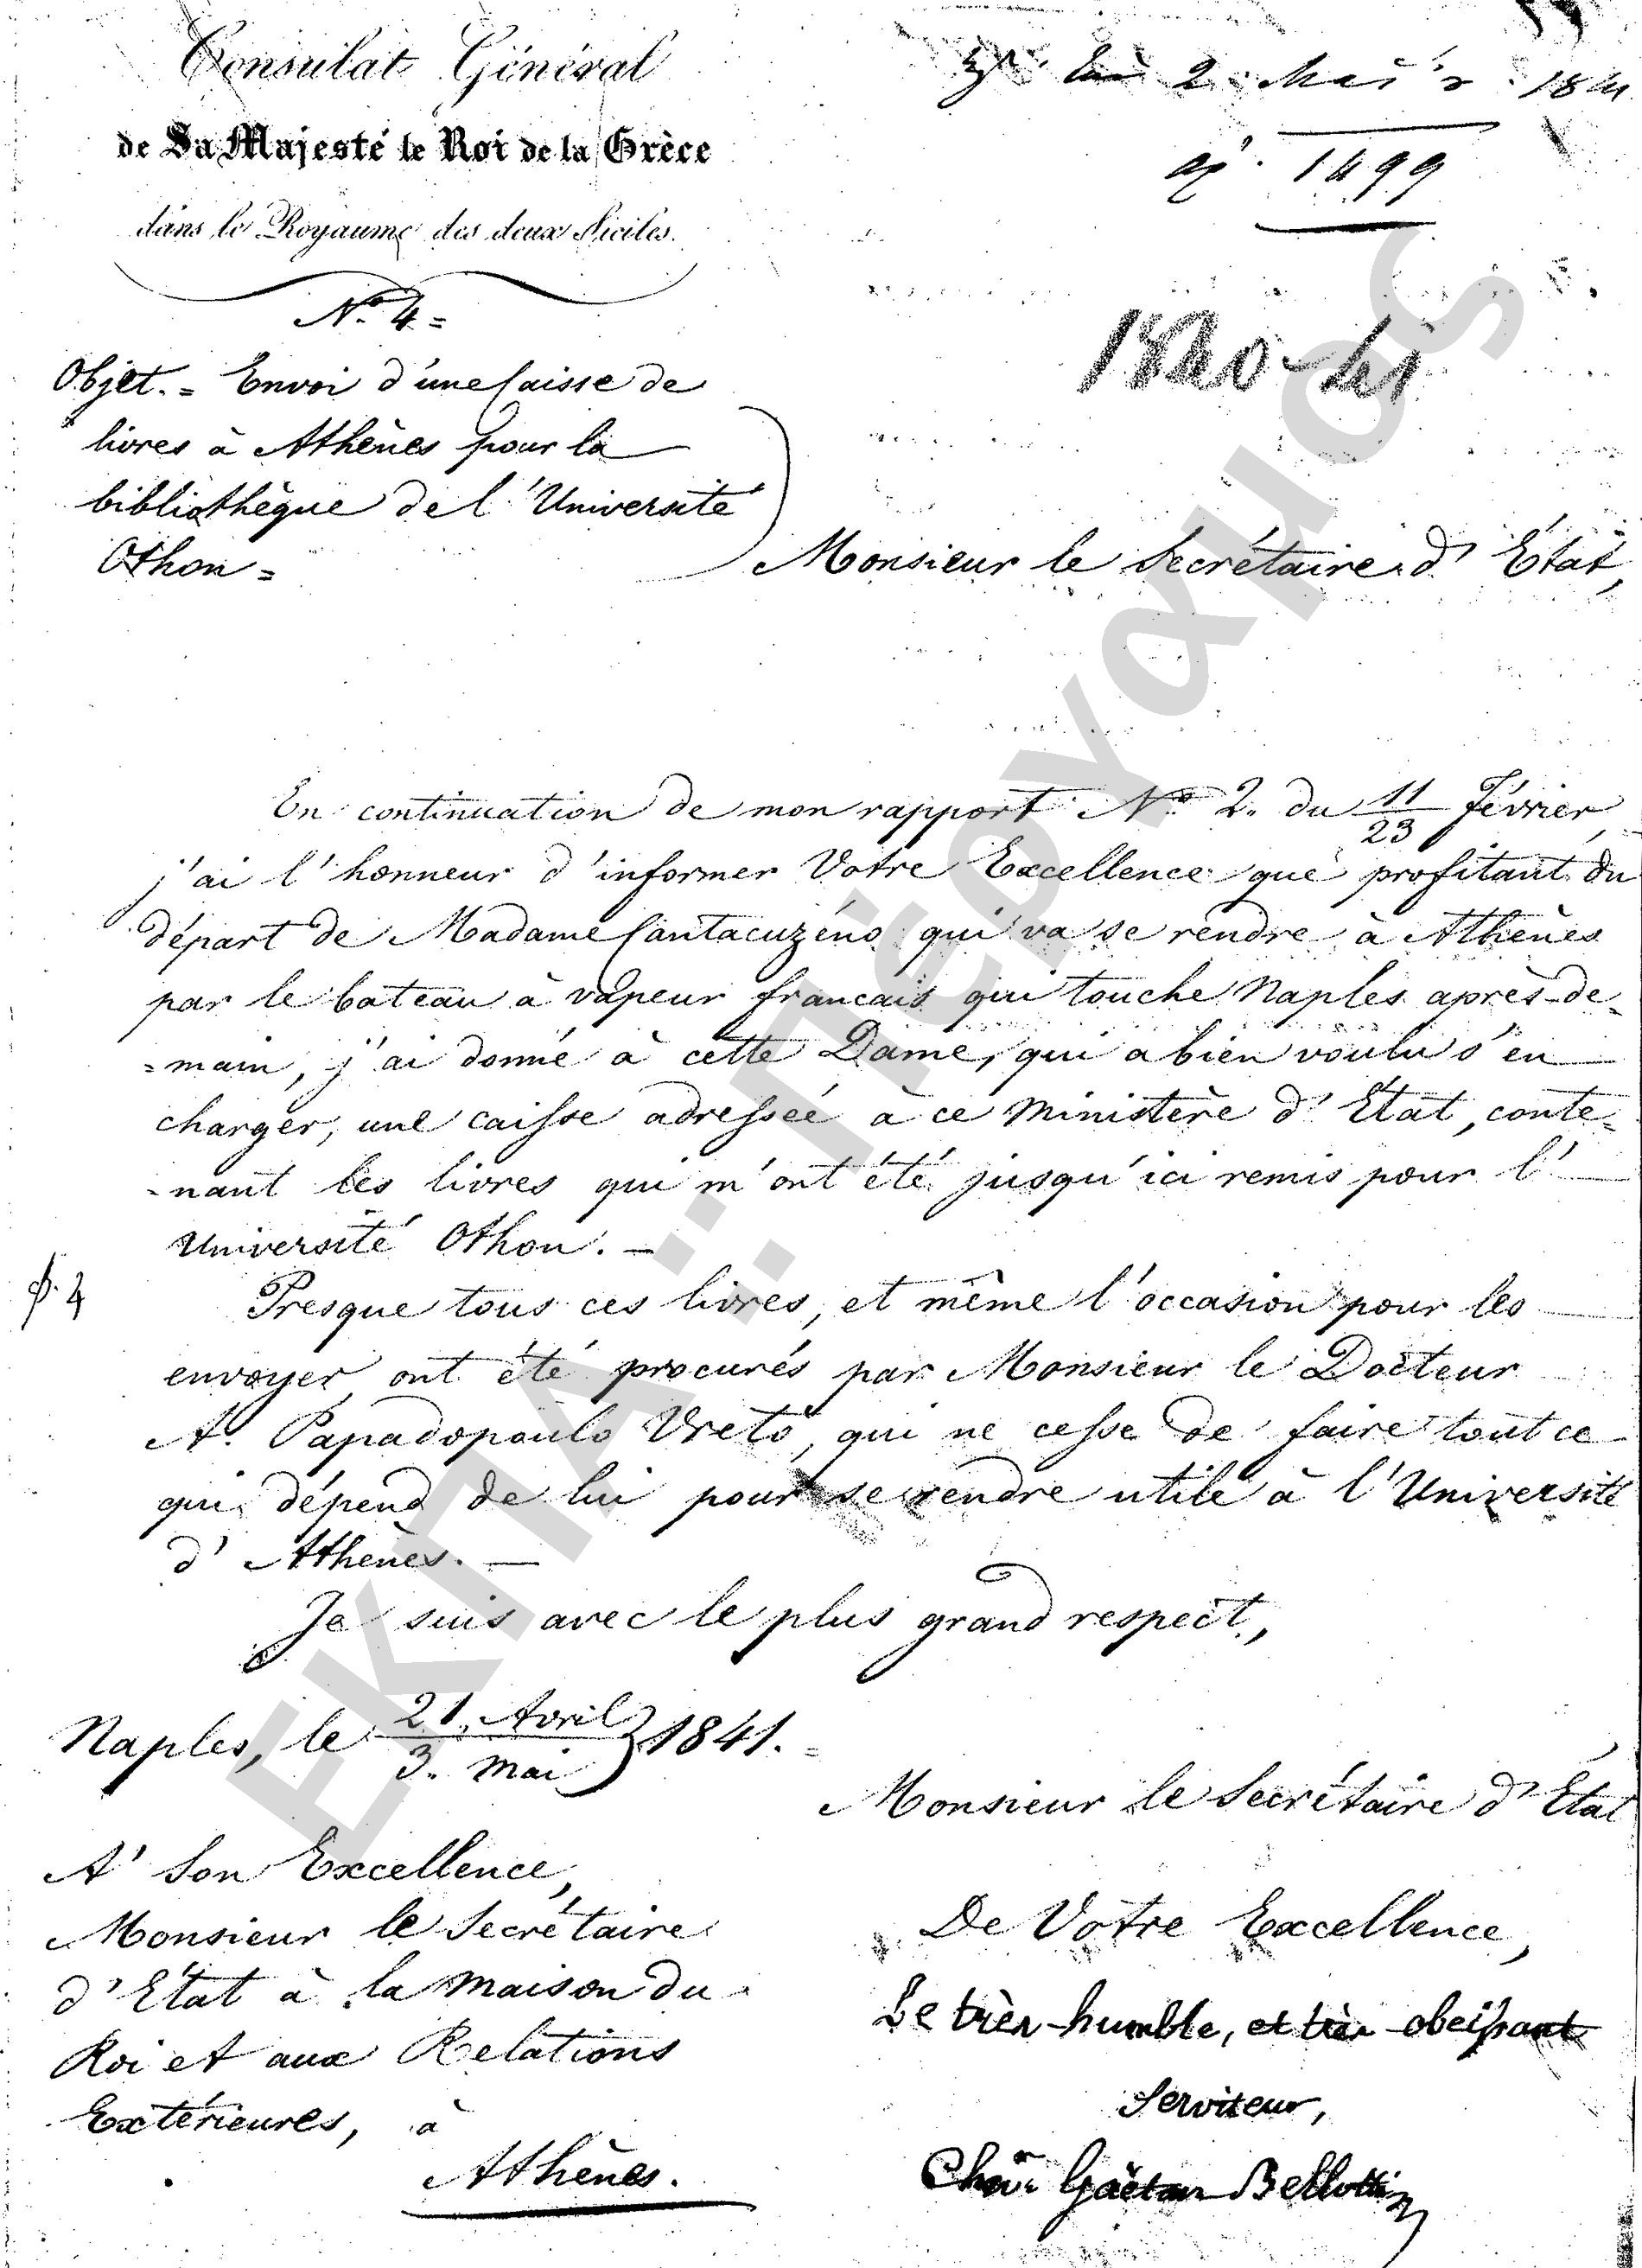 Consulat Général
de Sa Majesté le Roi de la Grèce
dans le Royaume des deux Siciles.
2 1841
1499
No. 4 =
1840-41
Objet. = Envoi d'une Caisse de
livres à Athènes pour la
bibliothèque de l'Université
Othon =
Monsieur le Secrétaire d'État,
En continuation de mon rapport No. 2. du 11/23 Février,
j'ai l'honneur d'informer Votre Excellence que profitant du
départ de Madame Cantacuzéno qui va se rendre à Athènes
par le bateau à vapeur francais qui touche Naples après-de-
=main, j'ai donné à cette Dame, qui a bien voulu s'en
charger, une caisse adressée à ce Ministère d'État, conte=
-nant les livres qui m'ont été jusqu'ici remis pour l'
Université Othon. —
Presque tous ces livres, et même l'occasion pour les
envoyer, ont été procurés par Monsieur le Docteur
A. Papadopoulo Vretò, qui ne cesse de faire tout ce
qui dépend de lui pour se rendre utile à l'Université
d'Athènes. —
Je suis avec le plus grand respect,
Naples, le 21. Avril / 3. Mai } 1841.
Monsieur le Secrétaire d'État
A' Son Excellence,
Monsieur le Secrétaire
d'État à la Maison du
Roi et aux Relations
Extérieures, à
Athènes.
De Votre Excellence,
Le très-humble, et très-obeissant
Serviteur,
Chev. Gaëtan Bellotti
ΕΚΠΑ::Πέργαμος